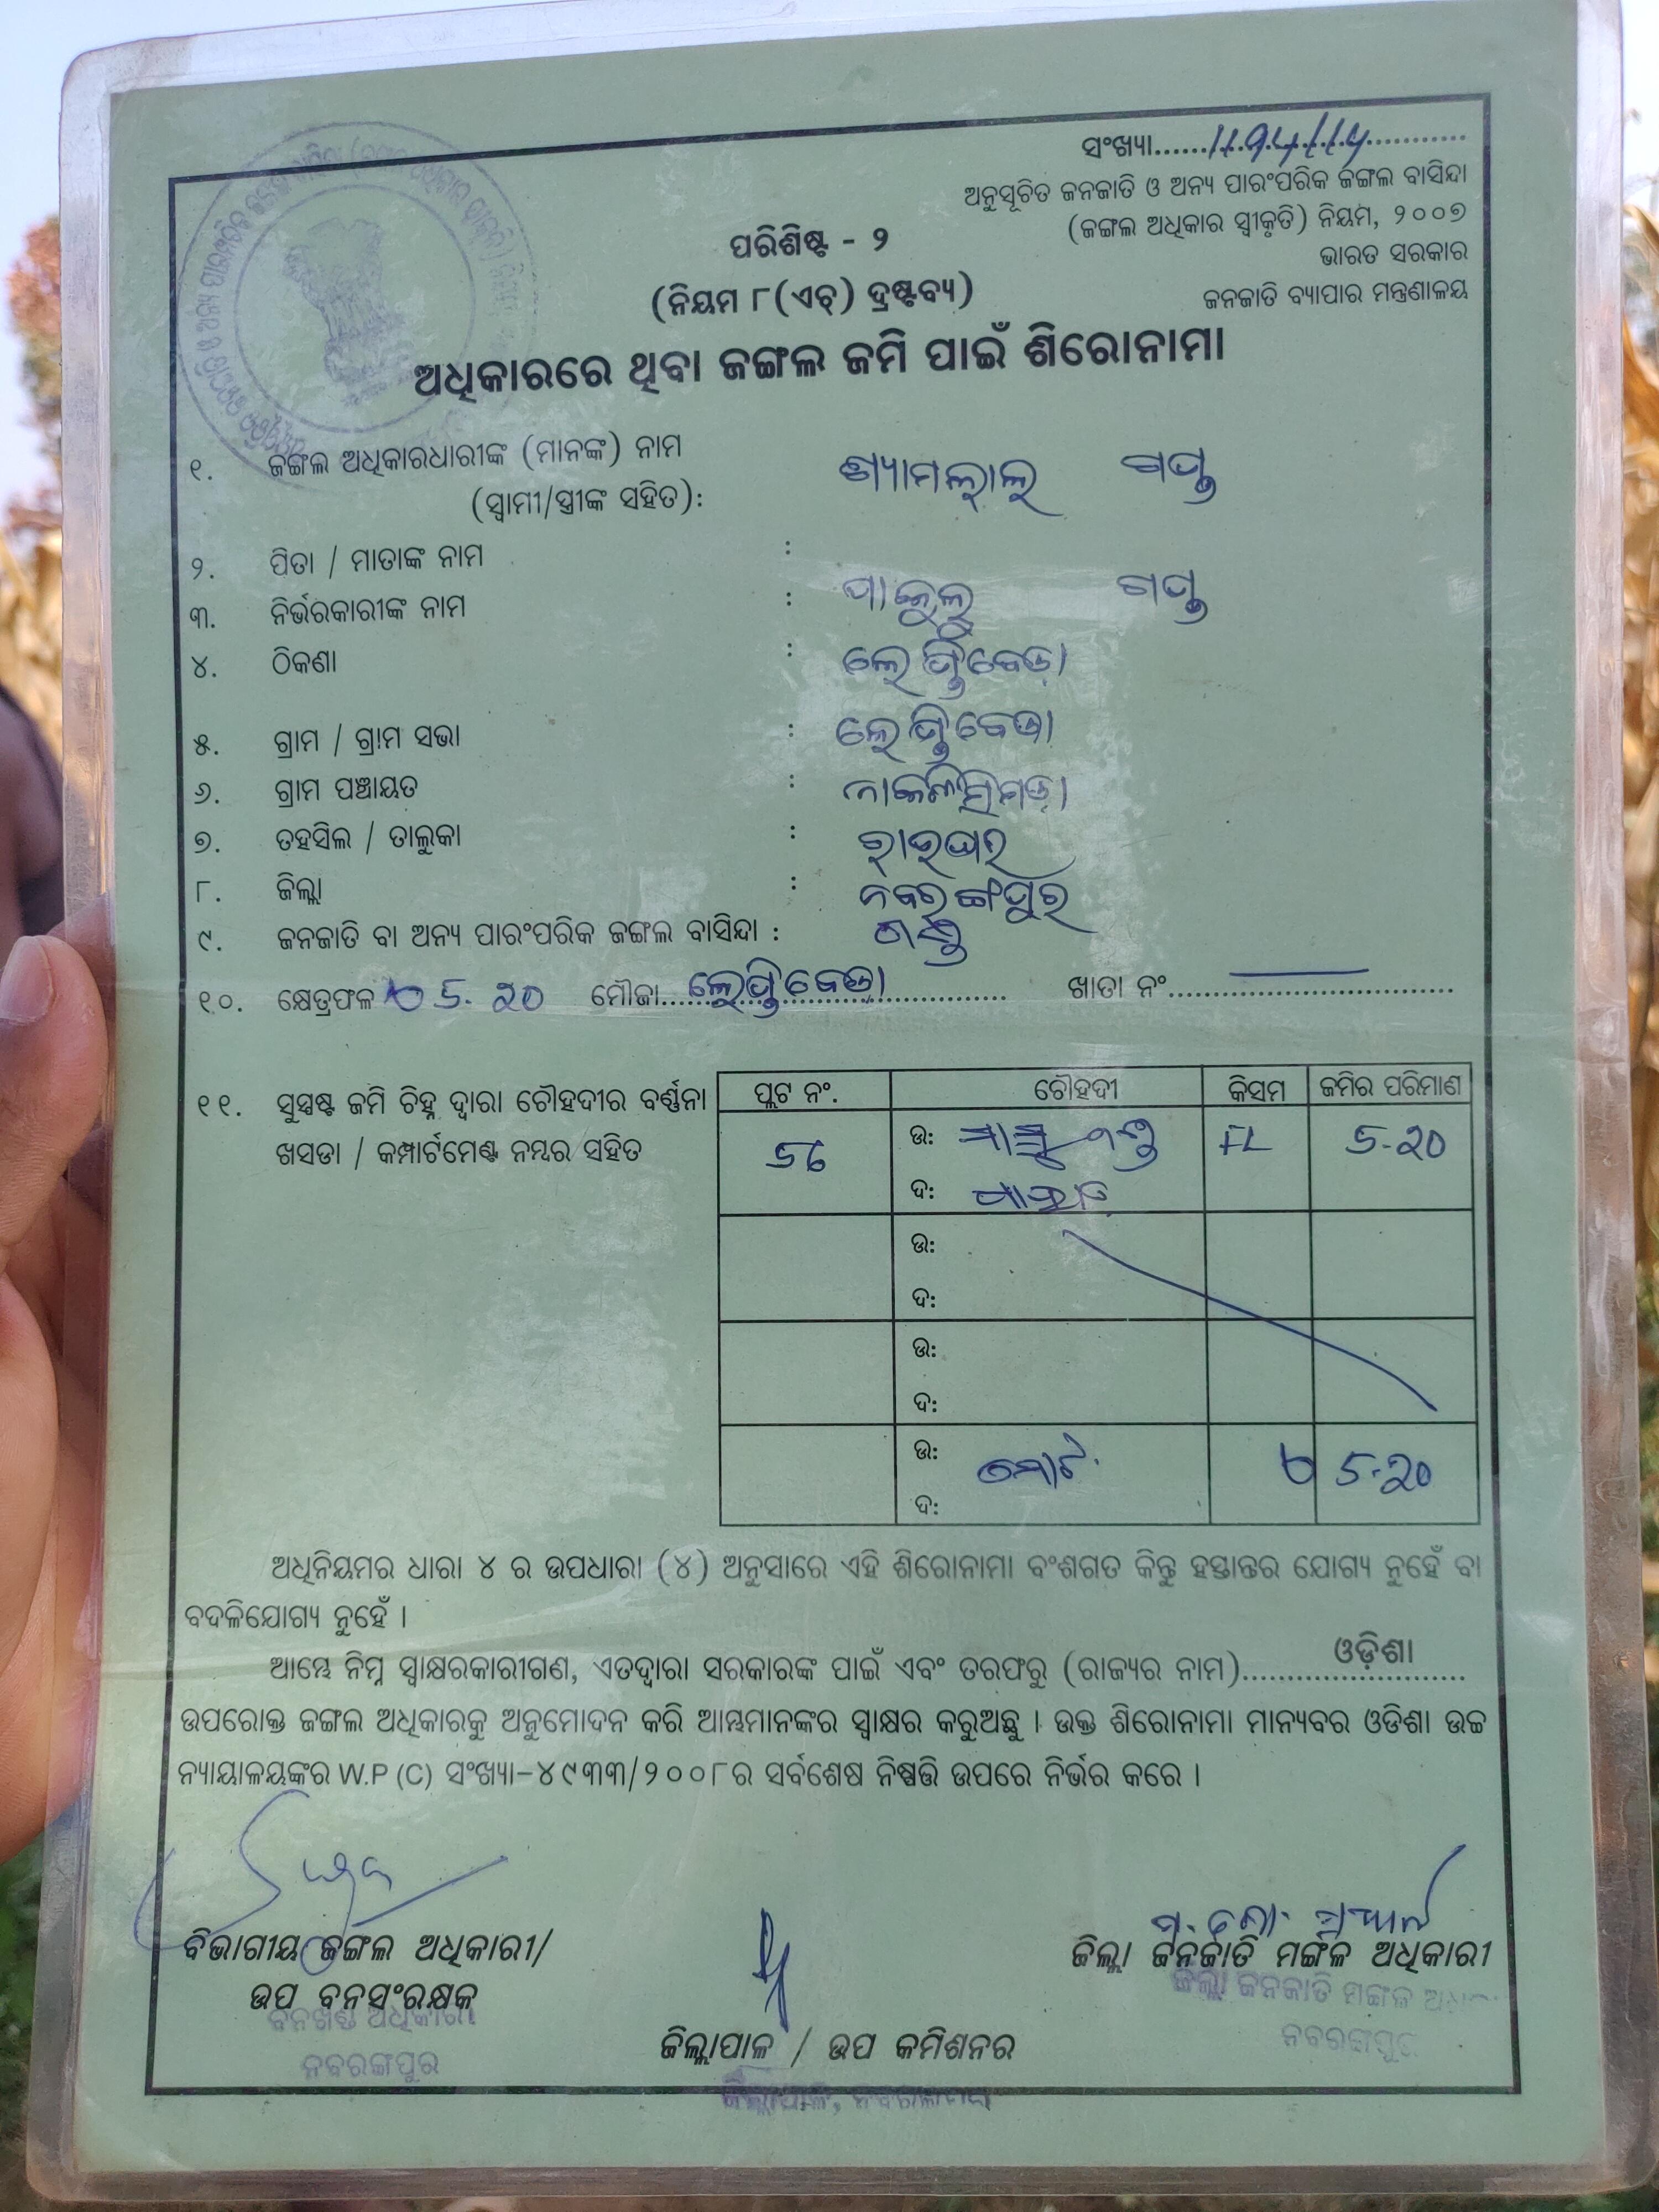 ସଂଖ୍ୟା......1194/14...........
ଅନୁସୂଚିତ ଜନଜାତି ଓ ଅନ୍ୟ ପାରଂପରିକ ଜଙ୍ଗଲ ବାସିନ୍ଦା
(ଜଙ୍ଗଲ ଅଧିକାର ସ୍ୱୀକୃତି) ନିୟମ, ୨୦୦୭
ଭାରତ ସରକାର
ଜନଜାତି ବ୍ୟାପାର ମନ୍ତ୍ରଣାଳୟ
ପରିଶିଷ୍ଟ - ୨
(ନିୟମ ୮(ଏଚ୍) ଦ୍ରଷ୍ଟବ୍ୟ)
ଅଧିକାରରେ ଥିବା ଜଙ୍ଗଲ ଜମି ପାଇଁ ଶିରୋନାମା
୧. ଜଙ୍ଗଲ ଅଧିକାରଧାରୀଙ୍କ (ମାନଙ୍କ) ନାମ
(ସ୍ୱାମୀ/ସ୍ତ୍ରୀଙ୍କ ସହିତ): ଶ୍ୟାମଲାଲ
୨. ପିତା / ମାତାଙ୍କ ନାମ :
୩. ନିର୍ଭରକାରୀଙ୍କ ନାମ :
୪. ଠିକଣା :
୫. ଗ୍ରାମ / ଗ୍ରାମ ସଭା :
୬. ଗ୍ରାମ ପଞ୍ଚାୟତ :
୭. ତହସିଲ / ତାଲୁକା : ରାଇଘର
୮. ଜିଲ୍ଲା : ନବରଙ୍ଗପୁର
୯. ଜନଜାତି ବା ଅନ୍ୟ ପାରଂପରିକ ଜଙ୍ଗଲ ବାସିନ୍ଦା :
୧୦. କ୍ଷେତ୍ରଫଳ 5.20 ମୌଜା.................................. ଖାତା ନଂ..............................
୧୧. ସୁସ୍ପଷ୍ଟ ଜମି ଚିହ୍ନ ଦ୍ୱାରା ଚୌହଦୀର ବର୍ଣ୍ଣନା
ଖସଡା / କମ୍ପାର୍ଟମେଣ୍ଟ ନମ୍ବର ସହିତ
ପ୍ଲଟ ନଂ. ଚୌହଦୀ କିସମ ଜମିର ପରିମାଣ
56 ଉ: FL 5-20
ଦ:
ଉ:
ଦ:
ଉ:
ଦ:
ଉ: ମୋଟ 5-20
ଦ:
ଅଧିନିୟମର ଧାରା ୪ ର ଉପଧାରା (୪) ଅନୁସାରେ ଏହି ଶିରୋନାମା ବଂଶଗତ କିନ୍ତୁ ହସ୍ତାନ୍ତର ଯୋଗ୍ୟ ନୁହେଁ ବା
ବଦଳିଯୋଗ୍ୟ ନୁହେଁ ।
ଆମ୍ଭେ ନିମ୍ନ ସ୍ୱାକ୍ଷରକାରୀଗଣ, ଏତଦ୍ୱାରା ସରକାରଙ୍କ ପାଇଁ ଏବଂ ତରଫରୁ (ରାଜ୍ୟର ନାମ)........ଓଡ଼ିଶା........
ଉପରୋକ୍ତ ଜଙ୍ଗଲ ଅଧିକାରକୁ ଅନୁମୋଦନ କରି ଆମ୍ଭମାନଙ୍କର ସ୍ୱାକ୍ଷର କରୁଅଛୁ । ଉକ୍ତ ଶିରୋନାମା ମାନ୍ୟବର ଓଡିଶା ଉଚ୍ଚ
ନ୍ୟାୟାଳୟଙ୍କର W.P (C) ସଂଖ୍ୟା-୪୯୩୩/୨୦୦୮ର ସର୍ବଶେଷ ନିଷ୍ପତ୍ତି ଉପରେ ନିର୍ଭର କରେ ।
ବିଭାଗୀୟ ଜଙ୍ଗଲ ଅଧିକାରୀ/
ଉପ ବନସଂରକ୍ଷକ
ବନଖଣ୍ଡ ଅଧିକାରୀ
ନବରଙ୍ଗପୁର
ଜିଲ୍ଲାପାଳ / ଉପ କମିଶନର
ଜିଲ୍ଲାପାଳ, ନବରଙ୍ଗପୁର
ଜିଲ୍ଲା ଜନଜାତି ମଙ୍ଗଳ ଅଧିକାରୀ
ଜିଲ୍ଲା ଜନଜାତି ମଙ୍ଗଳ
ନବରଙ୍ଗପୁର